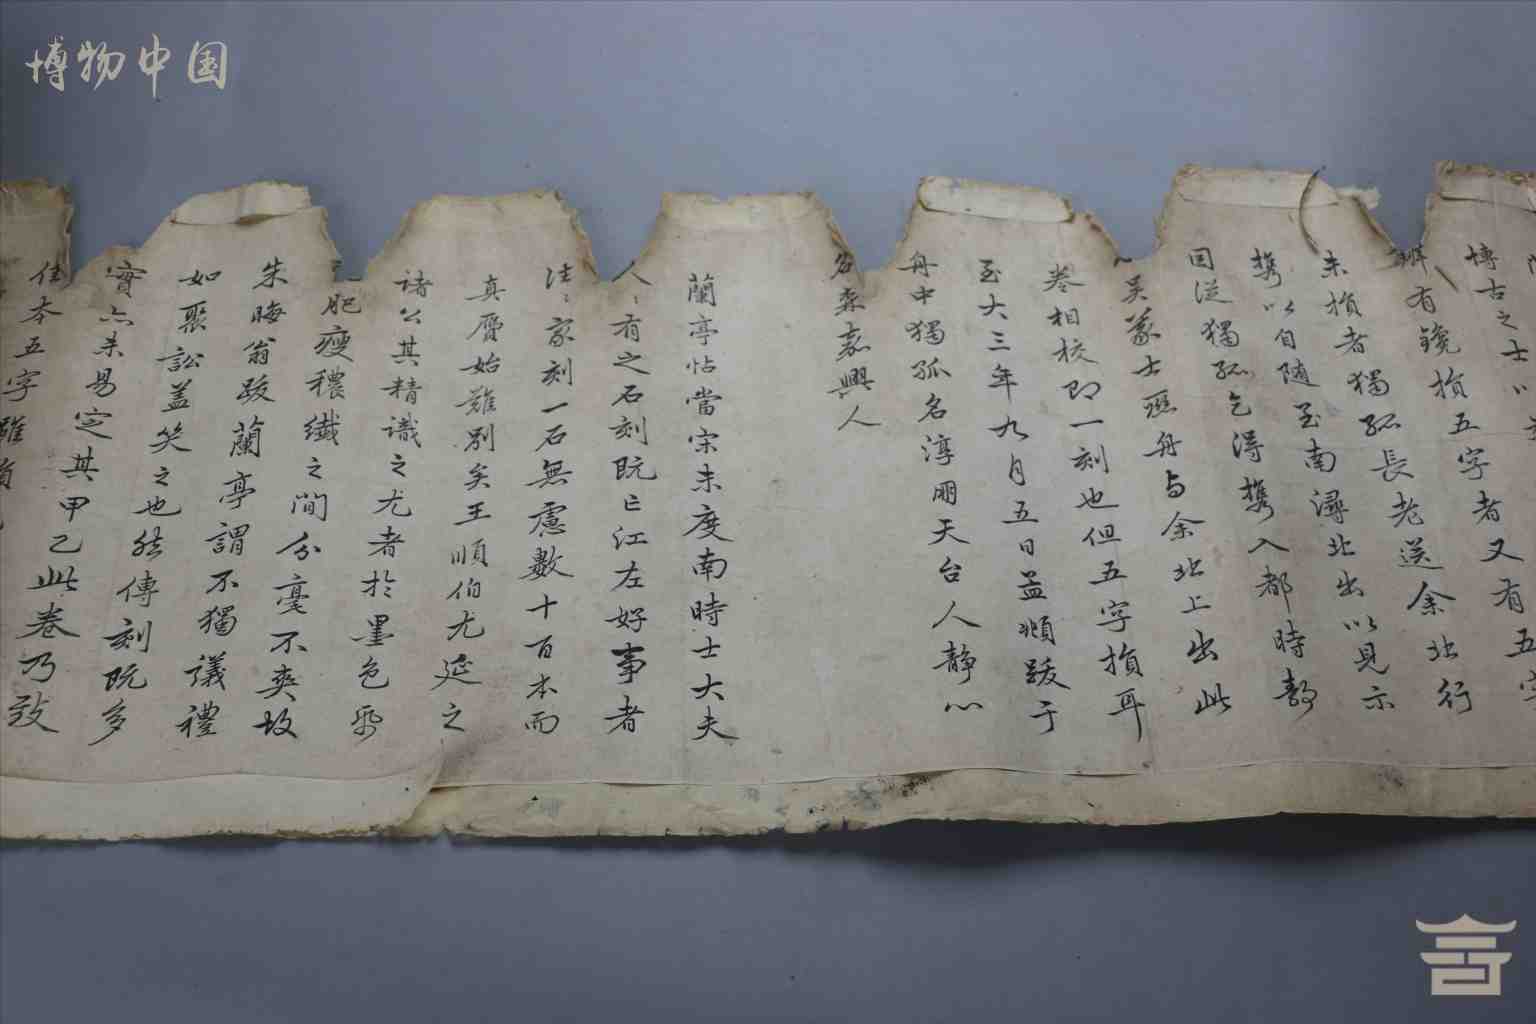 博物中国
博古之士以
辨有鑱損五字者又有五字
未損者獨孤長老送余北行
攜以自隨至南潯北出以見示
因從獨孤乞得攜入都時都
吴森士照舟与余北上出此
卷相校即一刻也但五字損耳
至大三年九月五日孟頫跋于
舟中獨孤名淳朋天台人静心
名森嘉興人
蘭亭帖當宋未度南時士大夫
人人有之石刻既亡江左好事者
往往家刻一石無慮數十百本而
真贋始難别矣王順伯尤延之
諸公其精識之尤者於墨色帋
肥瘦穠纖之間分毫不爽故
朱晦翁跋蘭亭謂不獨議禮
如聚訟蓋笑之也然傳刻既多
實亦未易定其甲乙此卷乃致
佳本五字雖損